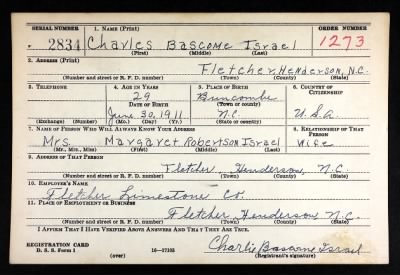 SERIAL NUMBER 1. NAME (Print) ORDER NUMBER
2834 Charles Bascome Israel 1273
(First) (Middle) (Last)
2. ADDRESS (Print)
Fletcher, Henderson, N.C.
(Number and street or R. F. D. number) (Town) (County) (State)
3. TELEPHONE 4. AGE IN YEARS 5. PLACE OF BIRTH 6. COUNTRY OF CITIZENSHIP
29 Buncombe
DATE OF BIRTH (Town or county)
June 30, 1911 N.C. U.S.A.
(Exchange) (Number) (Mo.) (Day) (Yr.) (State or country)
7. NAME OF PERSON WHO WILL ALWAYS KNOW YOUR ADDRESS 8. RELATIONSHIP OF THAT PERSON
Mrs. Margaret Robertson Israel Wife
(Mr., Mrs., Miss) (First) (Middle) (Last)
9. ADDRESS OF THAT PERSON
Fletcher, Henderson, N.C.
(Number and street or R. F. D. number) (Town) (County) (State)
10. EMPLOYER'S NAME
Fletcher Limestone Co.
11. PLACE OF EMPLOYMENT OR BUSINESS
Fletcher, Henderson N.C.
(Number and street or R. F. D. number) (Town) (County) (State)
I AFFIRM THAT I HAVE VERIFIED ABOVE ANSWERS AND THAT THEY ARE TRUE.
REGISTRATION CARD
D. S. S. Form 1 (over) 16—17105 Charlie Bascome Israel
(Registrant's signature)